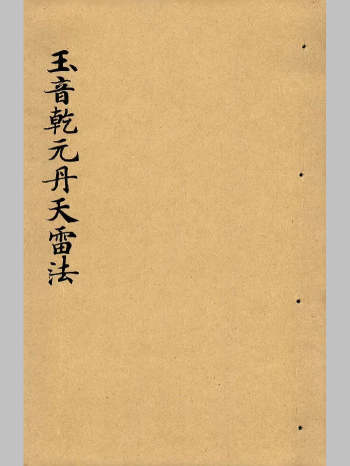 玉音乾元丹天雷法